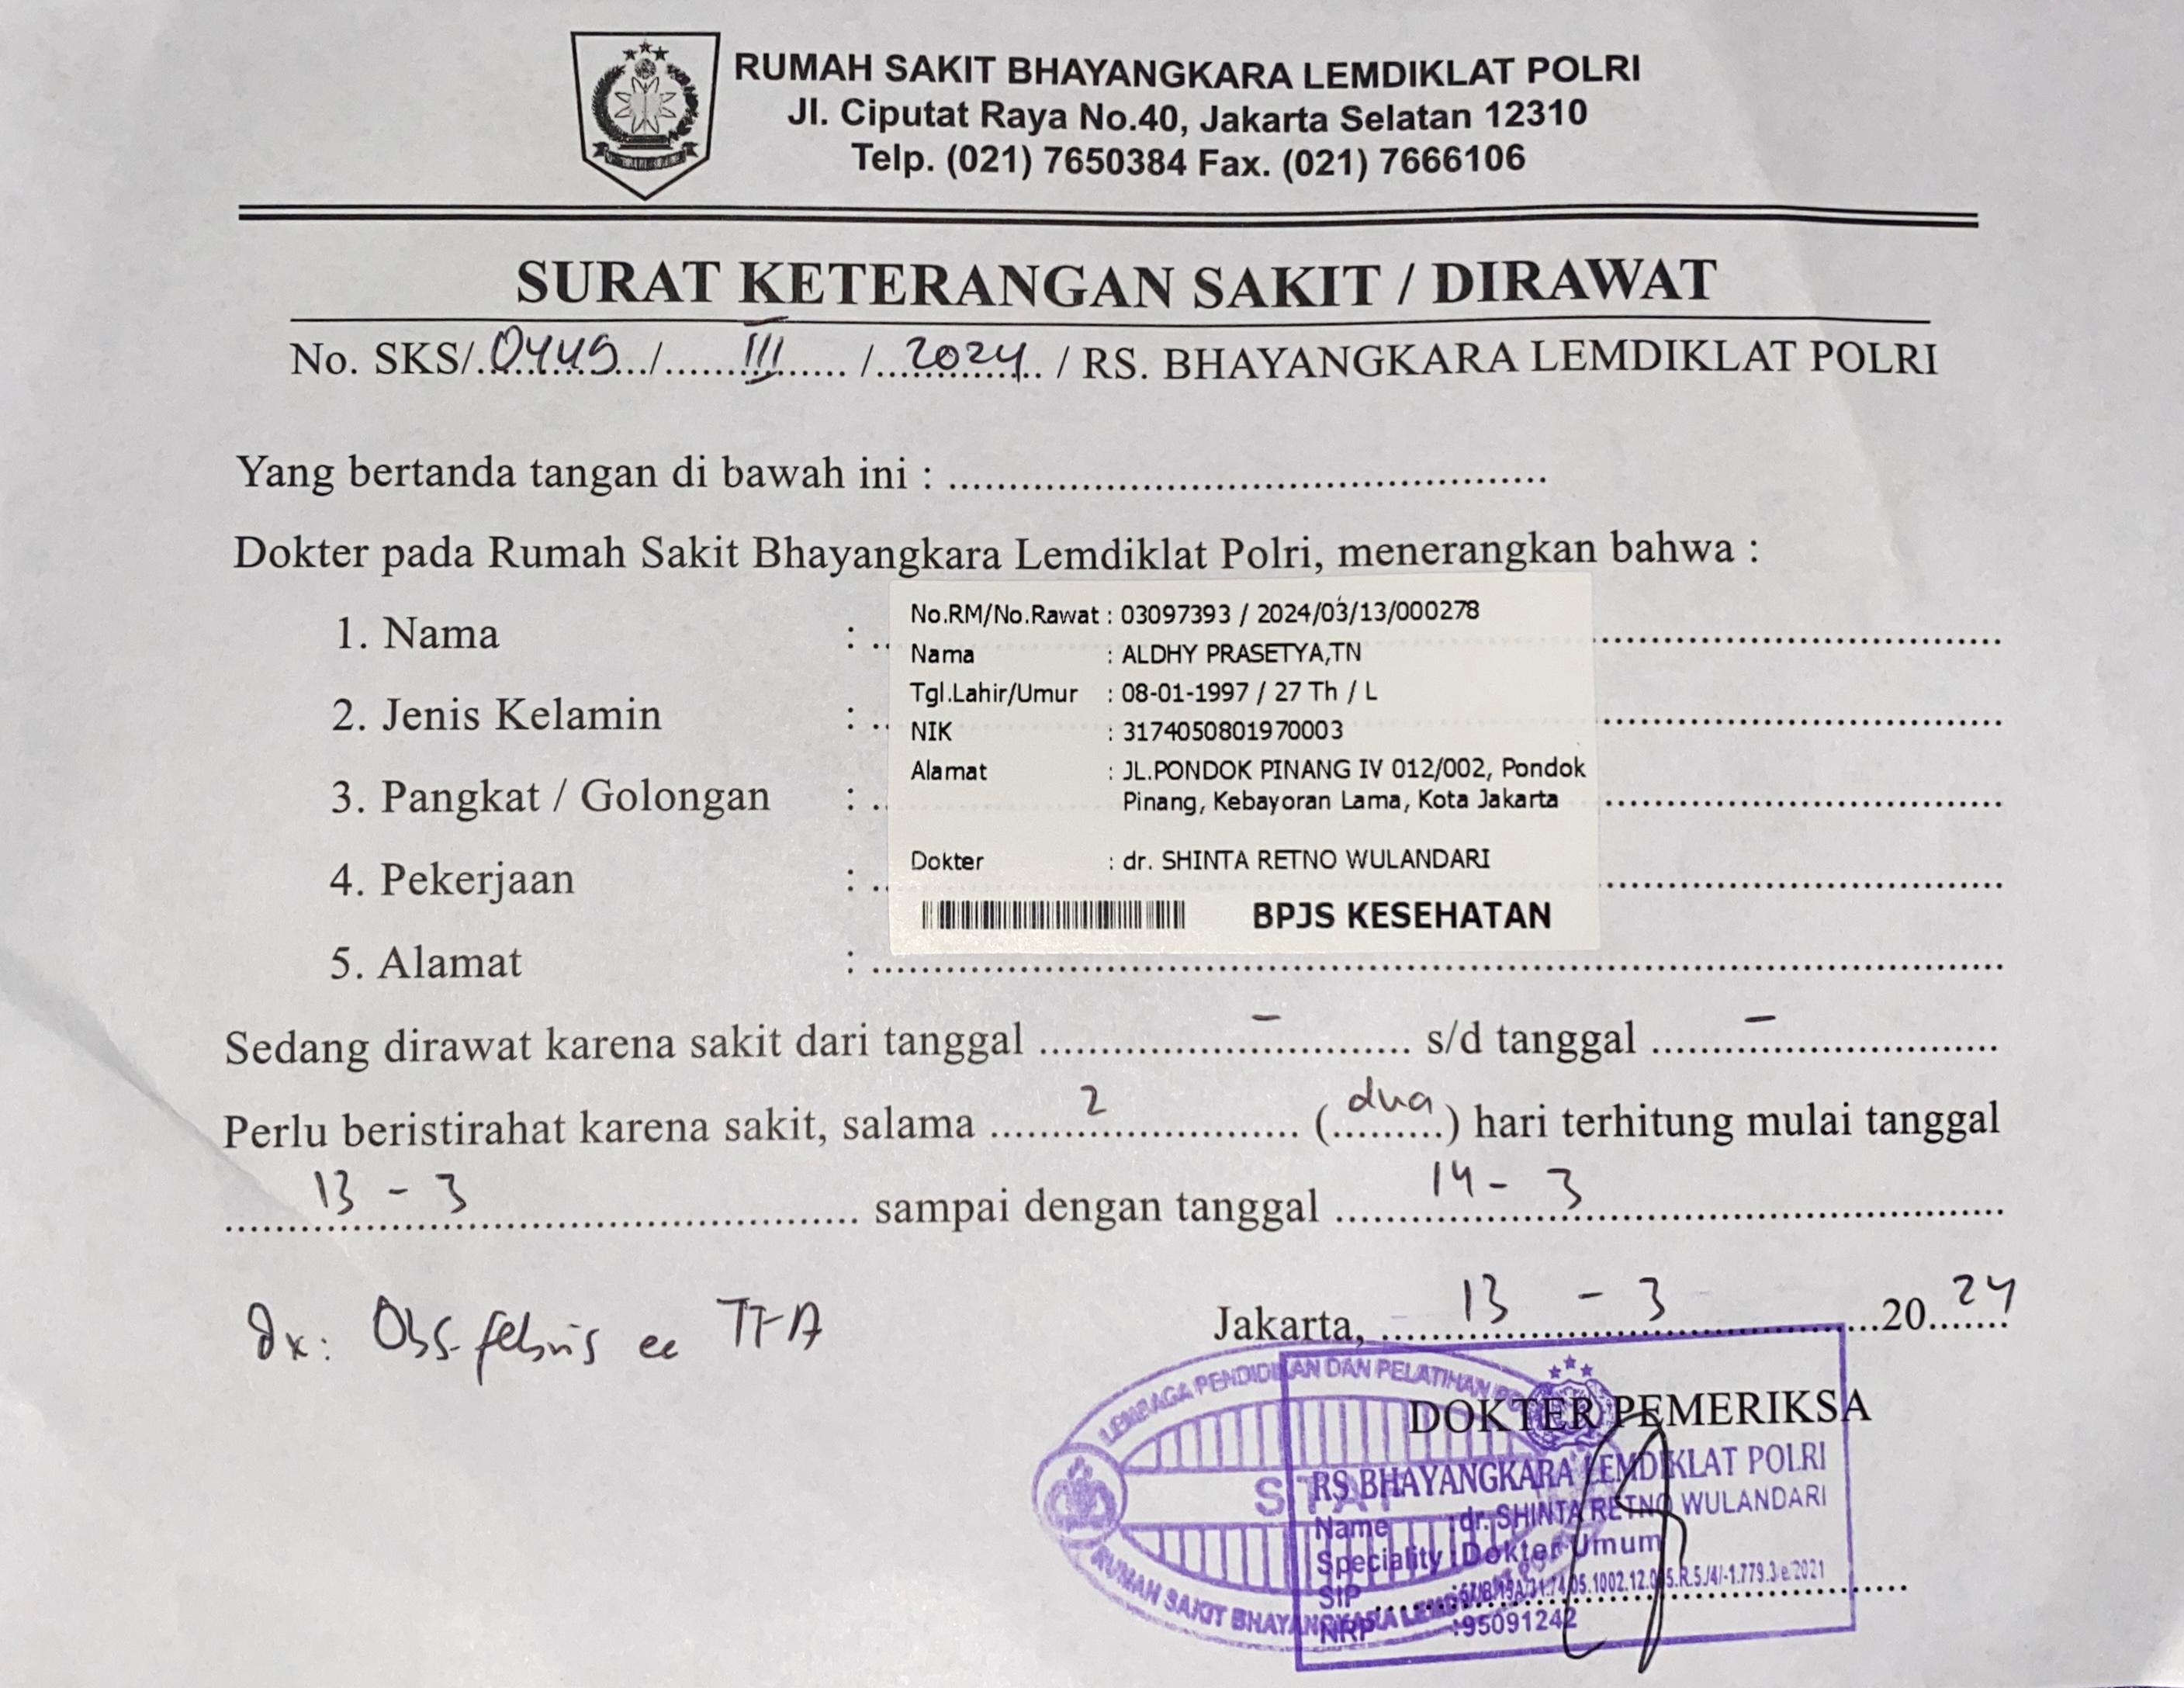 RUMAH SAKIT BHAYANGKARA LEMDIKLAT POLRI
Jl. Ciputat Raya No.40, Jakarta Selatan 12310
Telp. (021) 7650384 Fax. (021) 7666106
SURAT KETERANGAN SAKIT / DIRAWAT
No. SKS/.0449/ III / 2024 / RS. BHAYANGKARA LEMDIKLAT POLRI
Yang bertanda tangan di bawah ini : ..........
Dokter pada Rumah Sakit Bhayangkara Lemdiklat Polri, menerangkan bahwa :
1. Nama :
2. Jenis Kelamin :
3. Pangkat / Golongan :
4. Pekerjaan :
5. Alamat :
No.RM/No.Rawat : 03097393 / 2024/03/13/000278
Nama : ALDHY PRASETYA,TN
Tgl.Lahir/Umur : 08-01-1997 / 27 Th / L
NIK : 3174050801970003
Alamat : JL.PONDOK PINANG IV 012/002, Pondok
Pinang, Kebayoran Lama, Kota Jakarta
Dokter : dr. SHINTA RETNO WULANDARI
BPJS KESEHATAN
Sedang dirawat karena sakit dari tanggal - s/d tanggal -
Perlu beristirahat karena sakit, salama 2 (dua) hari terhitung mulai tanggal
13 - 3 sampai dengan tanggal 14 - 3
Dx: Obs febris ec TFA
Jakarta, 13 - 3 2024
DOKTER PEMERIKSA
LEMBAGA PENDIDIKAN DAN PELATIHAN
RUMAH SAKIT BHAYANGKARA
RS BHAYANGKARA LEMDIKLAT POLRI
Name : dr. SHINTA RETNO WULANDARI
Speciality : Dokter Umum
SIP
NRP : 95091242